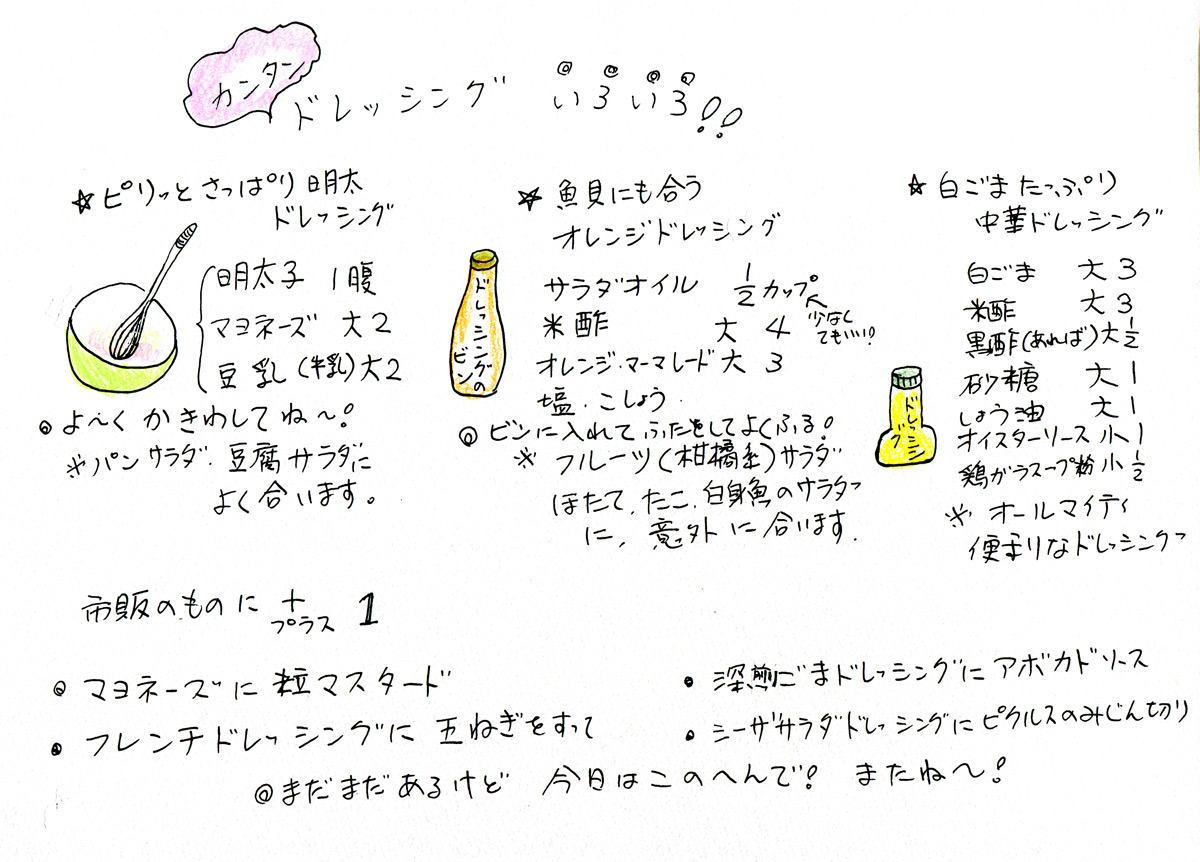 カンタン
ドレッシング いろいろ!!
☆ピリッとさっぱり明太
ドレッシング
明太子 1腹
マヨネーズ 大2
豆乳(牛乳)大2
◎よ〜くかきわしてね〜!
※パンサラダ.豆腐サラダに
よく合います。
☆魚貝にも合う
オレンジドレッシング
ドレッシングのビン
サラダオイル 1/2カップ
少なくてもいい!
米酢 大4
オレンジ・マーマレード大3
塩.こしょう.
◎ビンに入れてふたをしてよくふる!
※フルーツ(柑橘系)サラダ
ほたて,たこ,白身魚のサラダ
に,意外に合います.
☆白ごまたっぷり
中華ドレッシング
ドレッシング
白ごま 大3
米酢 大3
黒酢(あれば)大1/2
砂糖 大1
しょう油 大1
オイスターソース小1
鶏がらスープ粉小1/2
※オールマイティ
便利なドレッシング
市販のものに + 1
プラス
◎マヨネーズに粒マスタード
●フレンチドレッシングに玉ねぎをすって
●深煎ごまドレッシングにアボカドソース
●シーザサラダドレッシングにピクルスのみじん切り
◎まだまだあるけど 今日はこのへんで! またね〜!